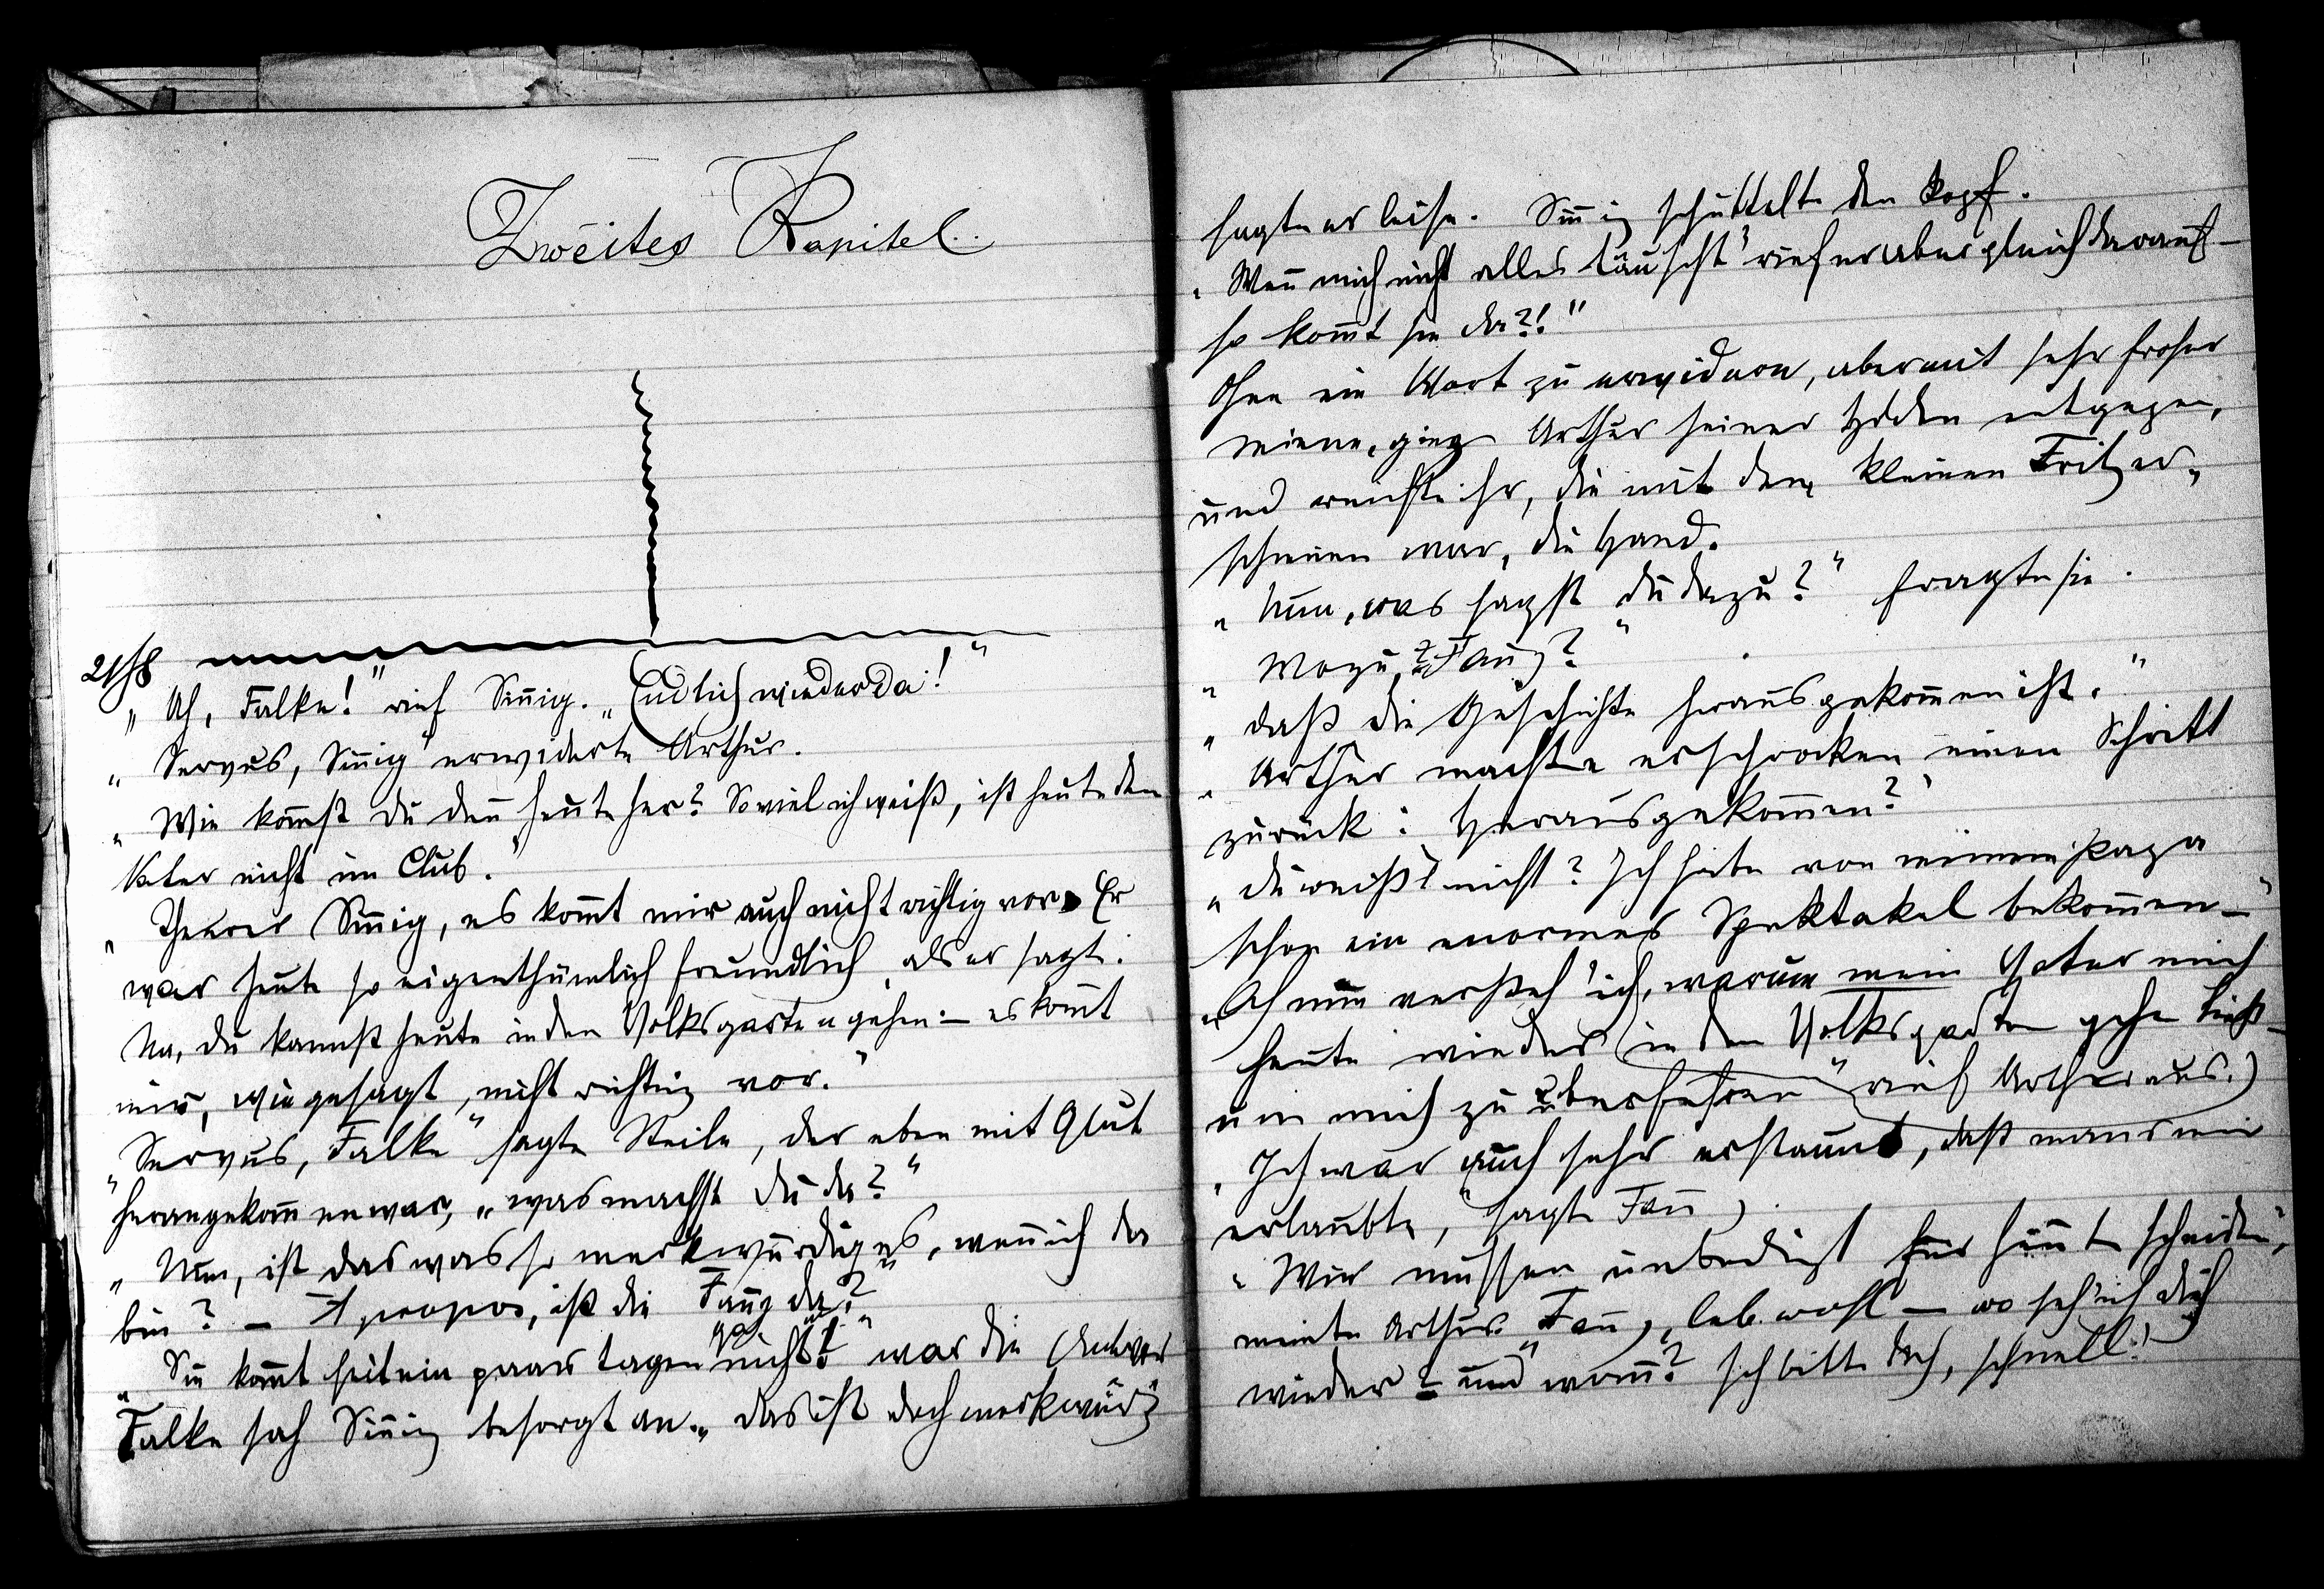 Zweites Kapitel.
21/8
„Ah, Falke!" rief Sinnig. „Endlich wieder da!"
„Servus, Sinnig" erwiderte Arthur.
„Wie kommst du denn heute her? Soviel ich weiß, ist heute dein
Vater nicht im Club."
„Theurer Sinnig, es kommt mir auch nicht richtig vor. Er
war heute so eigenthümlich freundlich, als er sagt:
Na, du kannst heute in den Volksgarten gehen – es kommt
mir, wie gesagt, nicht richtig vor."
„Servus, Falke" sagte Steile, der eben mit Glut
herangekommen war, „was machst du da?"
„Nun, ist das was so merkwürdiges, wenn ich da
bin? – Apropos, ist die Fanny da?"
„Sie kommt seit ein paar tagen gar nicht!" war die Antwor
Falke sah Sinnig besorgt an. „das ist doch merkwürdig
sagte er leise. Sinnig schüttelte den Kopf.
„Wenn mich nicht alles täuscht" rief er aber gleich darauf –
so kommt sie da?!"
Ohne ein Wort zu erwidern, aber mit sehr froher
Miene, ging Arthur seiner Holden entgegen,
und reichte ihr, die mit dem kleinen Fritz er„
schienen war, die Hand.
„Nun, was sagst du dazu?" fragte sie.
„Wozu, Fanny?"
„daß die Geschichte herausgekommen ist."
„Arthur machte erschrocken einen Schritt
zurück: Herausgekommen?
„du weißt nicht? Ich habe von meinem Papa
schon ein enormes Spektakel bekommen –"
„Ah nun versteh' ich, warum mein Vater mich
heute wieder in den Volksgarten gehn ließ –
um mich zu überführen" rief Arthur aus.)
„Ich war auch sehr erstaunt, daß man es mir
erlaubte," sagte Fanny.
„Wir müssen unbedingt für heute scheiden",
meinte Arthur „Fanny, leb wohl – wo seh' ich dich
wieder? und wann? Ich bitte dich, schnell!